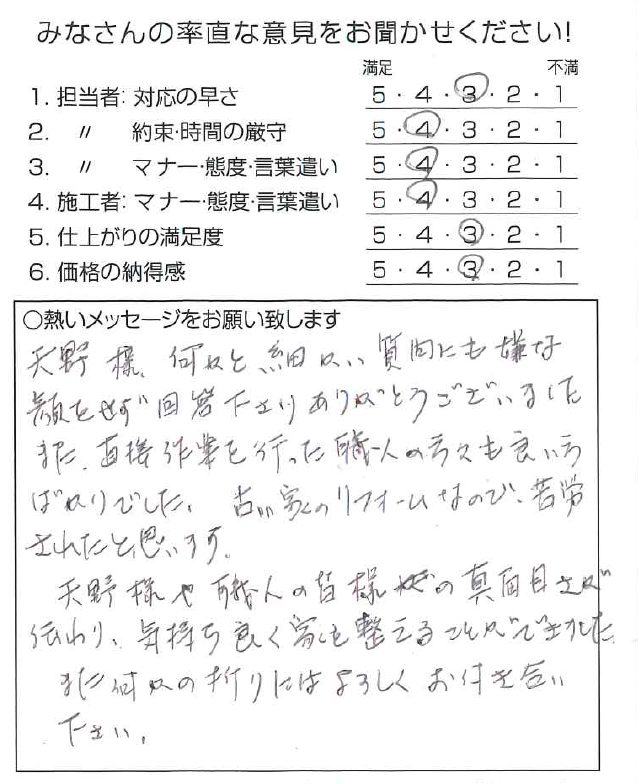 みなさんの率直な意見をお聞かせください!
満足 不満
1. 担当者: 対応の早さ 5・4・3・2・1
2. 〃 約束・時間の厳守 5・4・3・2・1
3. 〃 マナー・態度・言葉遣い 5・4・3・2・1
4. 施工者: マナー・態度・言葉遣い 5・4・3・2・1
5. 仕上がりの満足度 5・4・3・2・1
6. 価格の納得感 5・4・3・2・1
○熱いメッセージをお願い致します
天野様、何かと細かい質問にも嫌な
顔をせず回答下さりありがとうございました
また、直接作業を行った職人の方々も良い方
ばかりでした。 古い家のリフォームなので、苦労
されたと思います。
天野様や職人の皆様の真面目さが
伝わり、気持ち良く家を整えることができました
また何かの折りにはよろしくお付き合い
下さい。